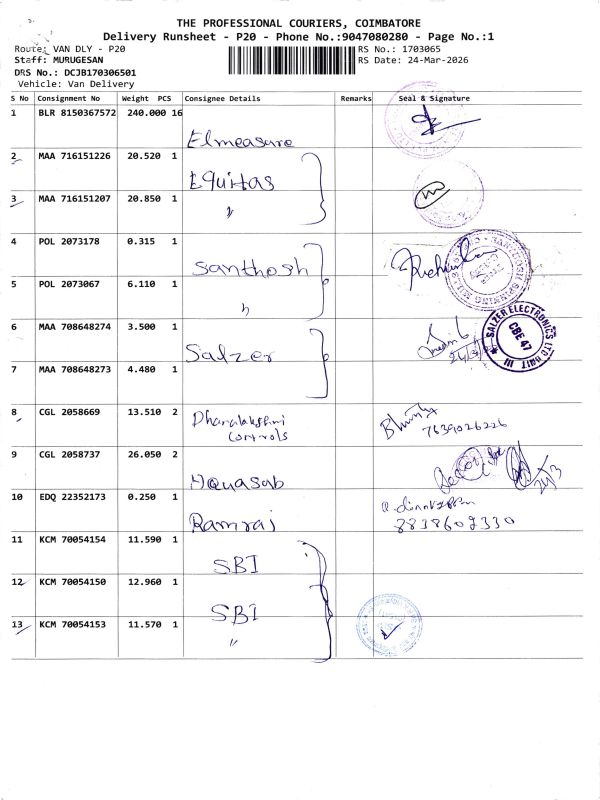 THE PROFESSIONAL COURIERS, COIMBATORE
Delivery Runsheet - P20 - Phone No.:9047080280 - Page No.:1
Route: VAN DLY - P20
RS No.: 1703065
Staff: MURUGESAN
RS Date: 24-Mar-2026
DRS No.: DCJB170306501
Vehicle: Van Delivery
S No Consignment No Weight PCS Consignee Details Remarks Seal & Signature
1 BLR 8150367572 240.000 16 Elmeasure
2 MAA 716151226 20.520 1 Equitas
3 MAA 716151207 20.850 1 "
4 POL 2073178 0.315 1 Santhosh
5 POL 2073067 6.110 1 "
6 MAA 708648274 3.500 1 Salzer
SALZER ELECTRONICS LTD UNIT III
CBE 47
7 MAA 708648273 4.480 1
8 CGL 2058669 13.510 2 Dhanalakshmi
Controls
7639026226
9 CGL 2058737 26.050 2 Aquasub
24/3
10 EDQ 22352173 0.250 1 Ramraj
8838609330
11 KCM 70054154 11.590 1 SBI
12 KCM 70054150 12.960 1 SBI
13 KCM 70054153 11.570 1 "